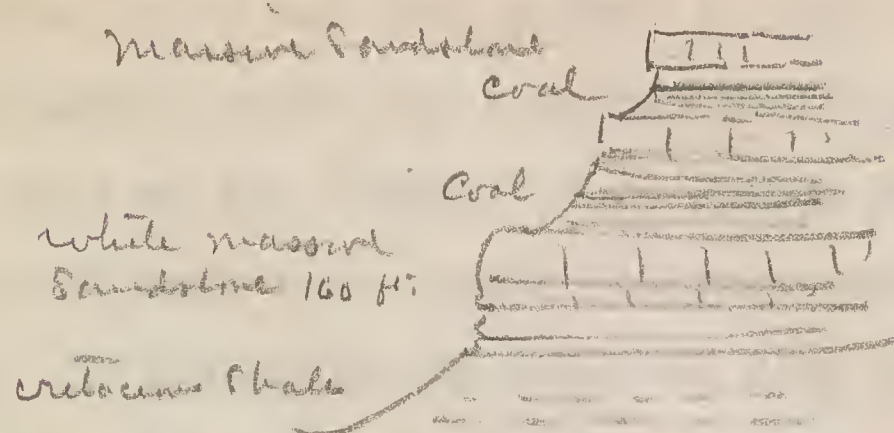 Massive Sandstone
Coal
Coal
white massive
Sandstone 160 ft.
cretaceous Shale